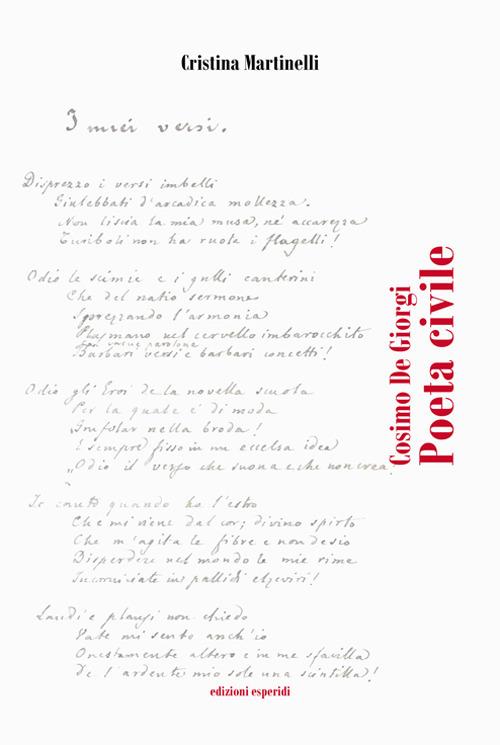 Cristina Martinelli
I miei versi.
Disprezzo i versi imbelli
Giulebbati d'arcadica mollezza.
Non liscia la mia musa, nè accarezza
Turiboli non ha ruota i flagelli!
Odio le scimie e i grulli canterini
Che del natio sermone
Sprezzando l'armonia
Plasmano nel cervello imbarocchito
parolone
Barbari versi e barbari concetti!
Odio gli Eroi de la novella scuola
Per la quale è di moda
Grufolar nella broda!
E sempre fisso in me eccelsa idea
„Odio il verso che suona e che non crea.
Io canto quando ho l'estro
Che mi viene dal cor; divino spirto
Che m'agita le fibre e non desio
Disperdere nel mondo le mie rime
Incorniciate in pallidi elzeviri!
Laudi e plausi non chiedo
Vate mi sento anch'io
Onestamente altero e in me sfavilla
De l'ardente mio sole una scintilla!
Cosimo De Giorgi
Poeta civile
edizioni esperidi